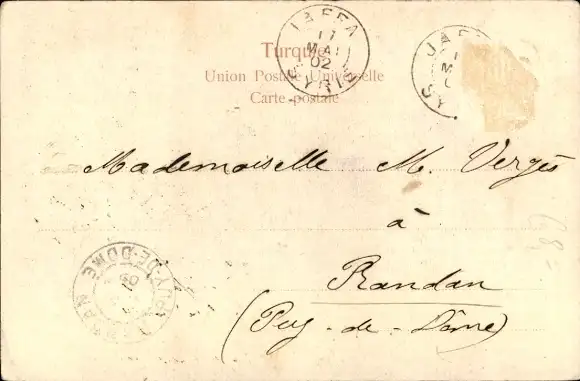 JAFFA
17
MAI
02
SYRIE
JAF
SY
Turquie
Union Postale Universelle
Carte postale
Mademoiselle M. Vergès
à
Randan
(Puy-de-Dôme)
RANDAN
PUY-DE-DOME